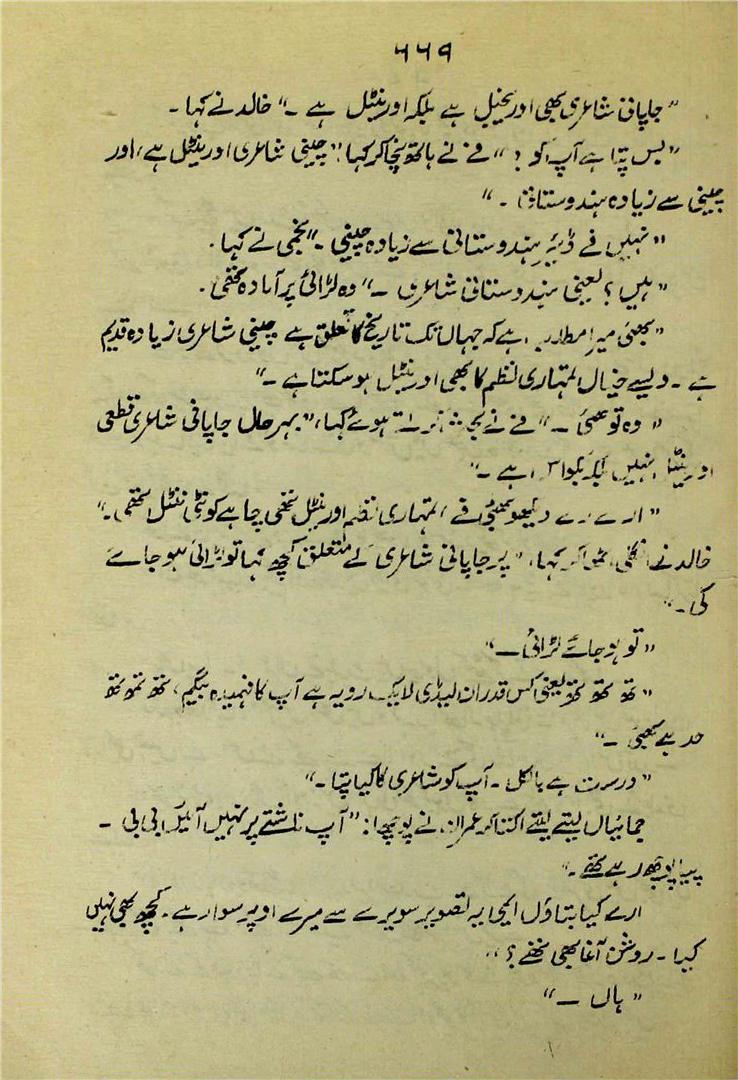 ۶۶۹
"جاپانی شاعری بھی اوریجنل ہے بلکہ اورینٹل ہے ۔" خالد نے کہا ۔
"بس پتا ہے آپ کو ؟" فے نے ہاتھ نچا کر کہا "چینی شاعری اورینٹل ہے، اور
چینی سے زیادہ ہندوستانی ۔"
"نہیں فے ڈیئر ہندوستانی سے زیادہ چینی ۔" نجمی نے کہا ۔
"ہیں ؟ یعنی ہندوستانی شاعری ۔" وہ لڑائی پر آمادہ تھی ۔
"بھئی میرا مطلب ہے کہ جہاں تک تاریخ کا تعلق ہے چینی شاعری زیادہ قدیم
ہے ۔ ویسے خیال تمہاری نظم کا بھی اورینٹل ہو سکتا ہے ۔"
"وہ تو تھی ۔" فے نے ہوئے کہا، "بہرحال جاپانی شاعری قطعی
اورینٹل نہیں بلکہ بکواس ہے ۔"
"ارے رے دیکھو بھئی فے، تمہاری نظم اورینٹل تھی چاہے کونٹی ننٹل تھی ۔"
خالد نے انگلی اٹھا کر کہا، "پر جاپانی شاعری کے متعلق کچھ کہا تو لڑائی ہو جائے
گی ۔"
"تو ہو جائے لڑائی ۔"
"تھ تھ تھ یعنی کس قدر ان لیڈی لائیک رویہ ہے آپ کا فہمیدہ بیگم، تھ تھ تھ
حد ہے بھئی ۔"
"درست ہے بالکل ۔ آپ کو شاعری کا کیا پتا ۔"
جمائیاں لیتے لیتے اکتا کر عمران نے پوچھا : "آپ ناشتے پر نہیں آئیں بی بی ۔
پوچھ رہے تھے ۔"
ارے کیا بتاؤں ایمی یہ تصویر سویرے سے میرے اوپر سوار ہے ۔ کچھ بھی نہیں
کیا ۔ روشن آغا بھی تھے ؟"
"ہاں ۔"